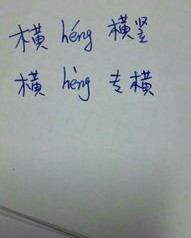 横 héng 横竖
横 hèng 专横